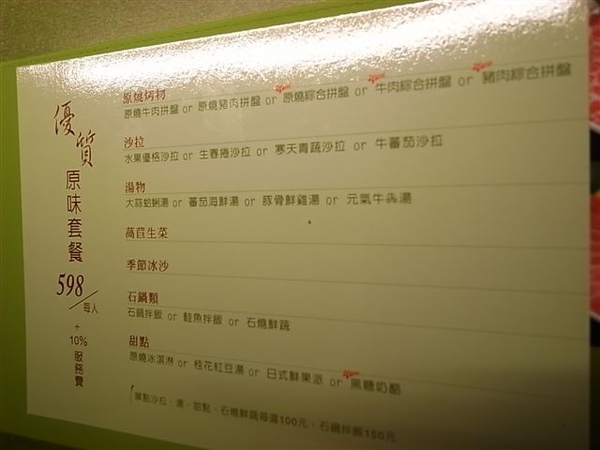 優質
原味套餐
598
/每人
+
10%
服務費
原燒烤物
原燒牛肉拼盤 or 原燒豬肉拼盤 or 原燒綜合拼盤 or 牛肉綜合拼盤 or 豬肉綜合拼盤
沙拉
水果優格沙拉 or 生春捲沙拉 or 寒天青蔬沙拉 or 牛蕃茄沙拉
湯物
大蒜蛤蜊湯 or 蕃茄海鮮湯 or 豚骨鮮雞湯 or 元氣牛犇湯
萵苣生菜
季節冰沙
石鍋類
石鍋拌飯 or 鮭魚拌飯 or 石燒鮮蔬
甜點
原燒冰淇淋 or 桂花紅豆湯 or 日式鮮果派 or 黑糖奶酪
單點沙拉、湯、甜點、石燒鮮蔬每道100元、石鍋拌飯150元